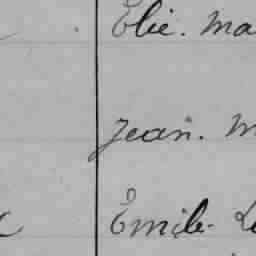 Elie. Ma
Jean. M
Emile. Le